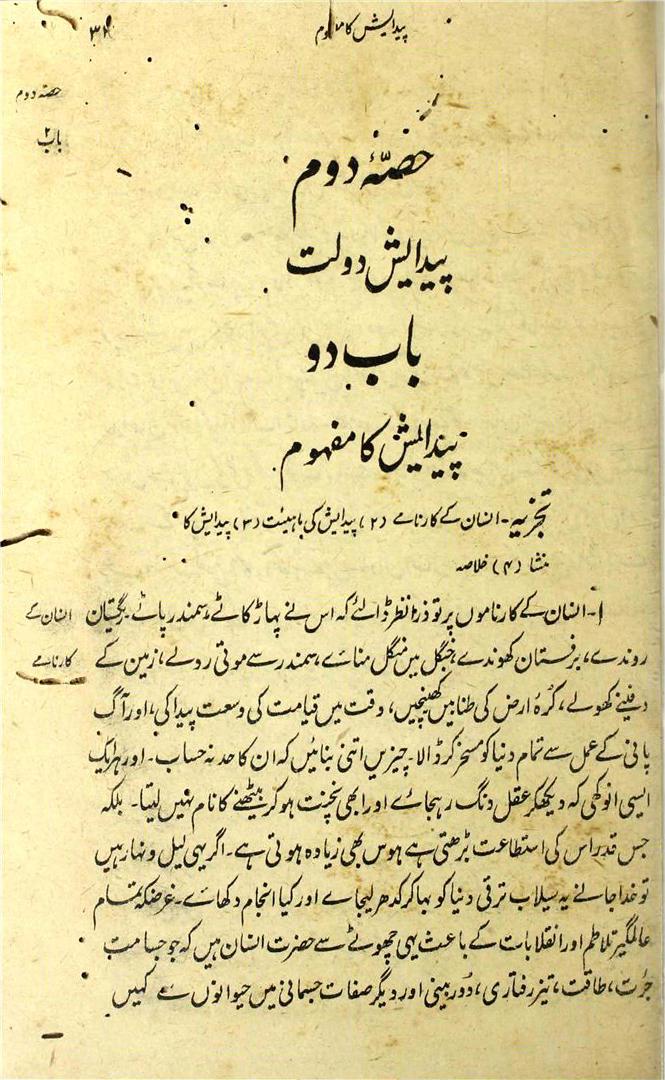 پیدایش کا مفہوم
۳۴
حصۂ دوم
باب ۲
حصۂ دوم
پیدایش دولت
باب دو
پیدایش کا مفہوم
تجزیہ۔ انسان کے کارنامے (۲) پیدایش کی ماہیئت (۳) پیدایش کا
منشا (۴) خلاصہ
۱۔ انسان کے کارناموں پر تو ذرا نظر ڈالئے کہ اس نے پہاڑ کاٹے، سمندر پاٹے، ریگستان
انسان کے
روندے، برفستان کھوندے، جنگل میں منگل منائے، سمندر سے موتی رولے، زمین کے
کارنامے
دفینے کھولے، کُرۂ ارض کی طنابیں کھینچیں، وقت میں قیامت کی وسعت پیدا کی، اور آگ
پانی کے عمل سے تمام دنیا کو مسخر کر ڈالا۔ چیزیں اتنی بنائیں کہ ان کا حد نہ حساب۔ اور ہر ایک
ایسی انوکھی کہ دیکھکر عقل دنگ رہجائے اور ابھی نچنت ہوکر بیٹھنے کا نام نہیں لیتا۔ بلکہ
جس قدر اس کی استطاعت بڑھتی ہے ہوس بھی زیادہ ہوتی ہے۔ اگر یہی لیل و نہار ہیں
تو خدا جانے یہ سیلاب ترقی دنیا کو بہا کر کدھر لیجائے اور کیا انجام دکھائے۔ غرضکہ تمام
عالمگیر تلاطم اور انقلابات کے باعث یہی چھوٹے سے حضرت انسان ہیں کہ جو جسامت
جُرت، طاقت، تیز رفتاری، دُور بینی اور دیگر صفات جسمانی میں حیوانوں سے کہیں